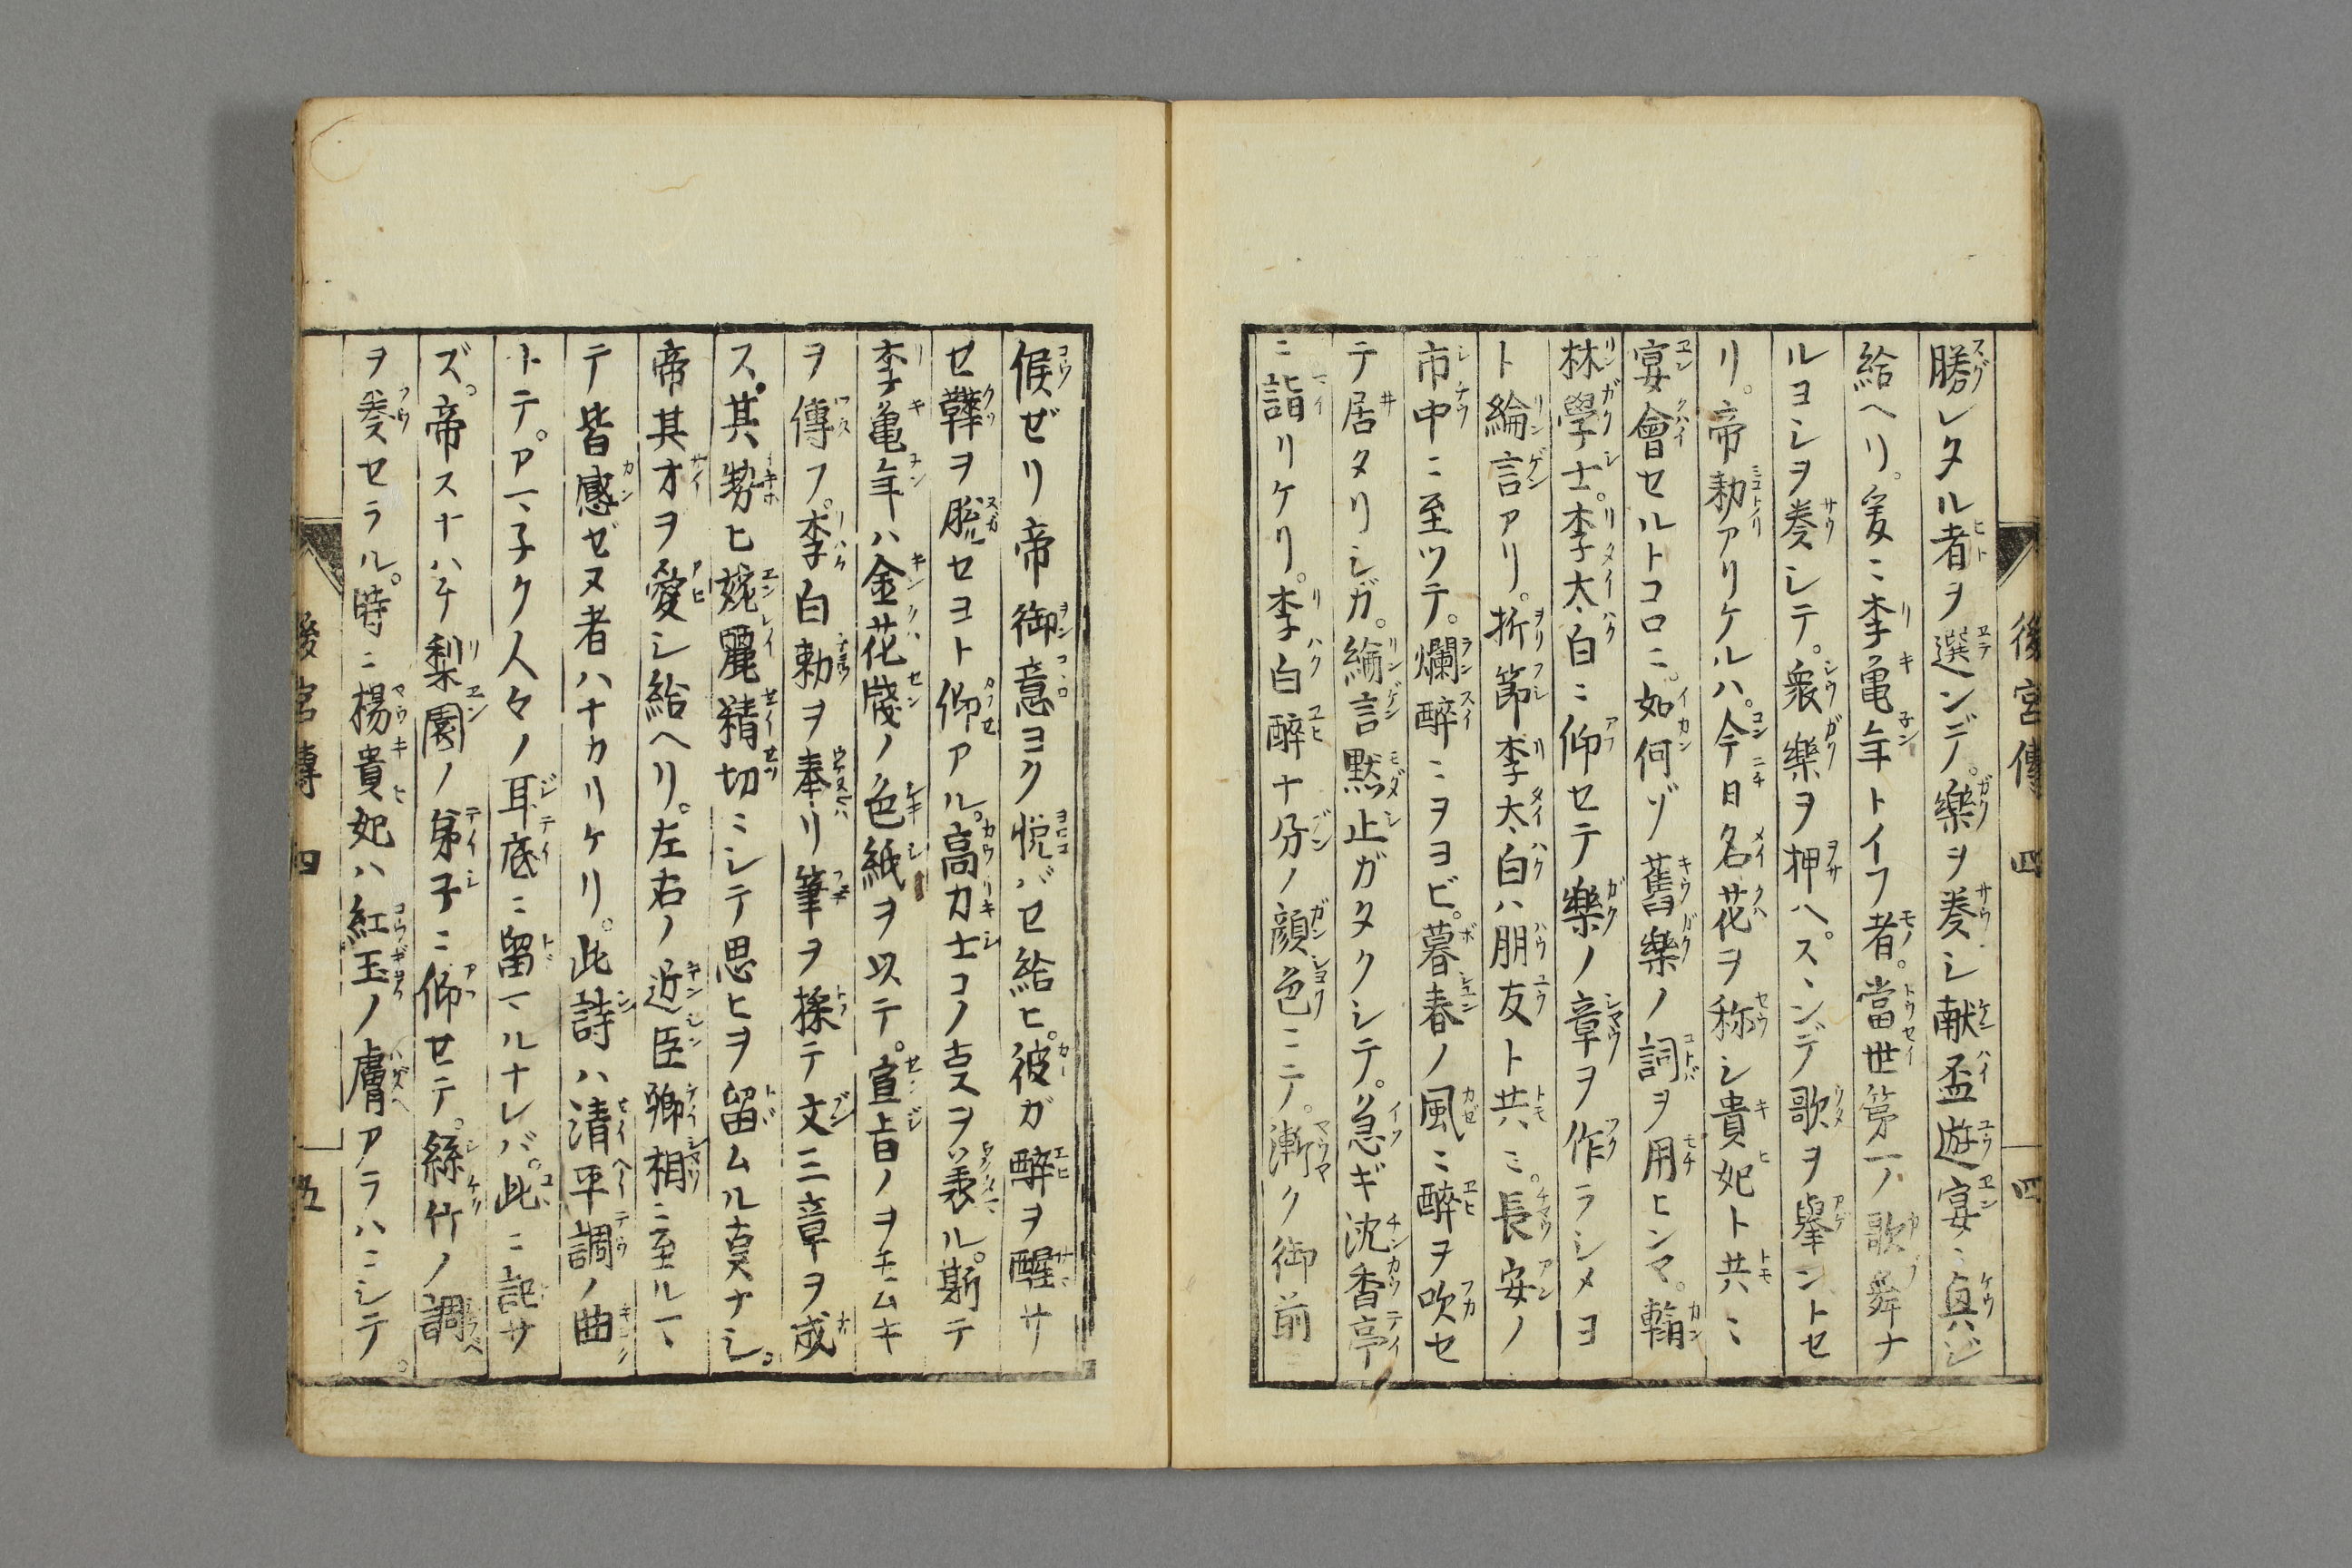 後宮傳 四 四
勝レタル者ヲ選ンデ。樂ヲ奏シ献盃遊宴ニ眞ジ
給ヘリ。爰ニ李亀年トイフ者。當世第一ノ歌舞ナ
ルヨシヲ奏シテ。衆樂ヲ押ヘ。スヽンデ歌ヲ擧ントセ
リ。帝勅アリケルハ。今日名花ヲ称シ貴妃ト共ニ
宴會セルトコロニ。如何ゾ舊樂ノ詞ヲ用ヒンマ。翰
林學士。李太白ニ仰セテ樂ノ章ヲ作ラシメヨ
ト綸言アリ。折節李太白ハ朋友ト共ニ。長安ノ
市中ニ至ツテ。爛醉ニヲヨビ。暮春ノ風ニ醉ヲ吹セ
テ居タリシガ。綸言黙止ガタクシテ。急ギ沈香亭
ニ詣リケリ。李白醉十分ノ顔色ニテ。漸ク御前
候ゼリ帝御意ヨク悦バセ給ヒ。彼ガ醉ヲ醒サ
セ鞾ヲ脱セヨト仰アル。高力士コノ叓ヲ承ル。斯テ
李亀年ハ金花牋ノ色紙ヲ以テ。宣旨ノヲモムキ
ヲ傳フ。李白勅ヲ奉リ筆ヲ採テ文三章ヲ成
ス。其勢ヒ婉麗精切ニシテ思ヒヲ留ムル叓ナシ。
帝其才ヲ愛シ給ヘリ。左右ノ近臣卿相ニ至ルマヽ
テ皆感ゼヌ者ハナカリケリ。此詩ハ清平調ノ曲
トテ。アマ子ク人々ノ耳底ニ留マルナレバ。此ニ記サ
ズ。帝スナハチ梨園ノ弟子ニ仰セテ。絲竹ノ調
ヲ奏セラル。時ニ楊貴妃ハ紅玉ノ膚アラハニシテ。
後宮傳 四 五